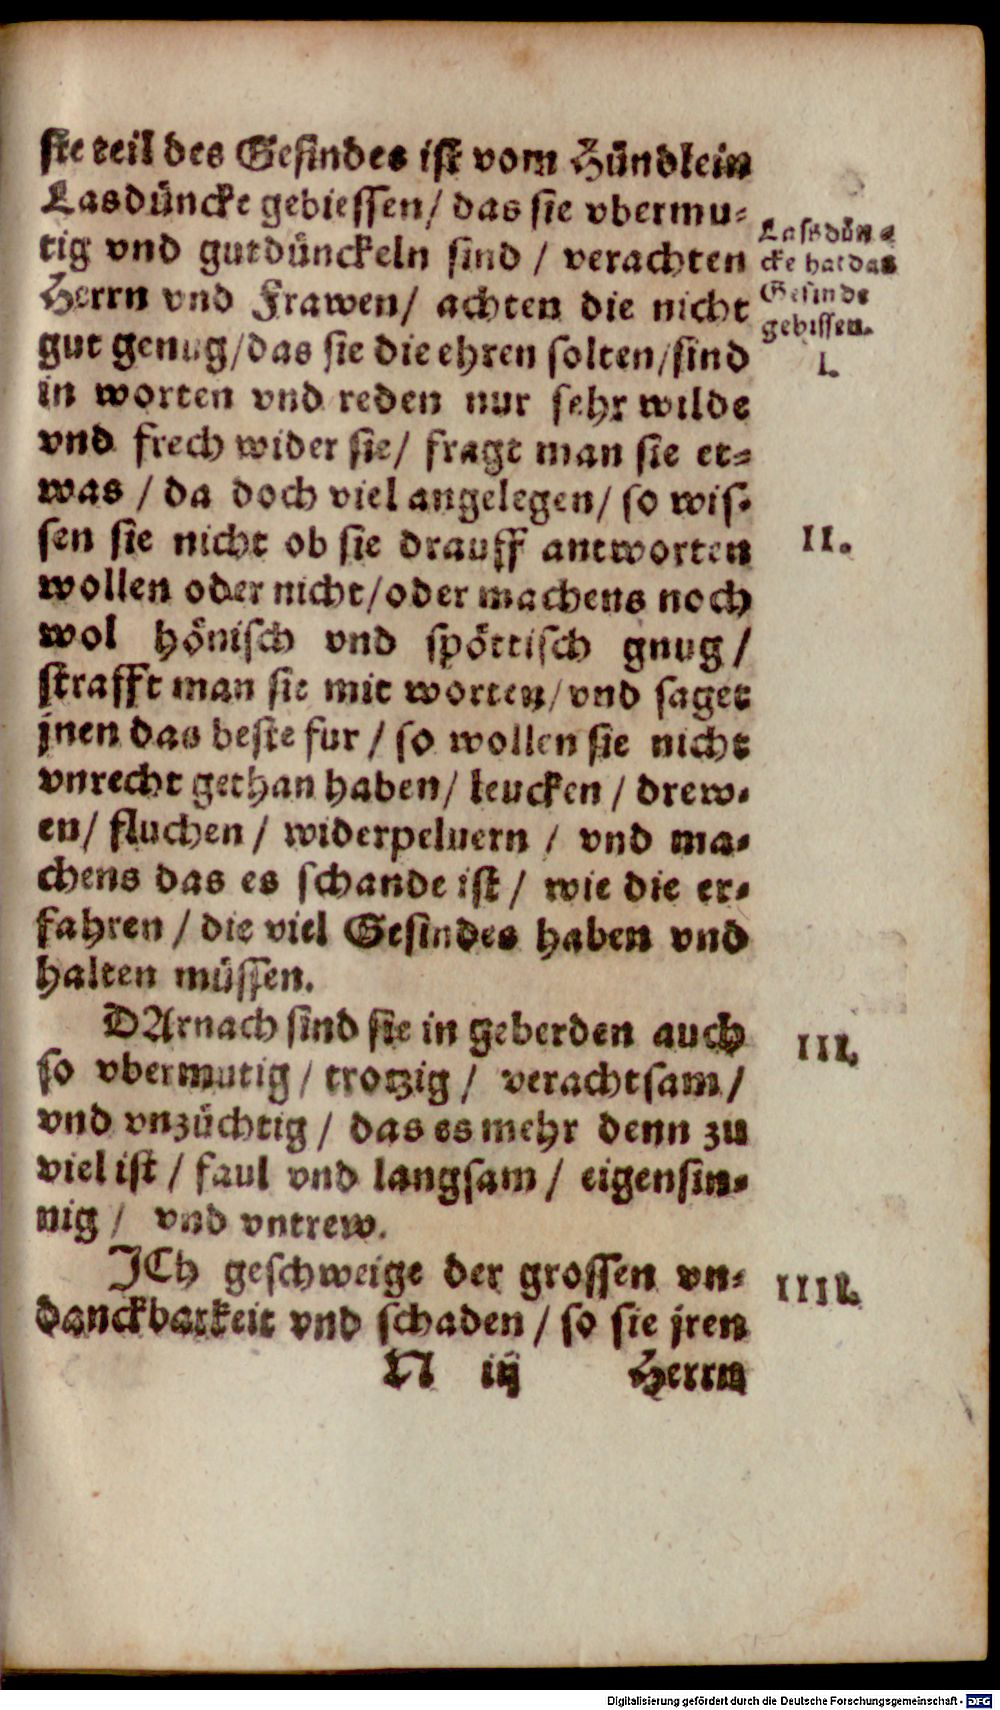 ste teil des Gesindes ist vom Hündlein
Lasdüncke gebiessen / das sie vbermu-
tig vnd gutdünckeln sind / verachten
Herrn vnd Frawen / achten die nicht
gut genug / das sie die ehren solten / sind
in worten vnd reden nur sehr wilde
vnd frech wider sie / fragt man sie et-
was / da doch viel angelegen / so wis-
sen sie nicht ob sie drauff antworten
wollen oder nicht / oder machens noch
wol hönisch vnd spöttisch gnug /
strafft man sie mit worten / vnd saget
jnen das beste fur / so wollen sie nicht
vnrecht gethan haben / leucken / drew-
en / fluchen / widerpeluern / vnd ma-
chens das es schande ist / wie die er-
fahren / die viel Gesindes haben vnd
halten müssen.
DArnach sind sie in geberden auch
so vbermutig / trotzig / verachtsam /
vnd vnzüchtig / das es mehr denn zu
viel ist / faul vnd langsam / eigensin-
nig / vnd vntrew.
JCh geschweige der grossen vn-
danckbarkeit vnd schaden / so sie jren
N iij Herrn
Lassdün-
cke hat das
Gesinde
gebissen.
I.
II.
III.
IIII.
Digitalisierung gefördert durch die Deutsche Forschungsgemeinschaft - DFG